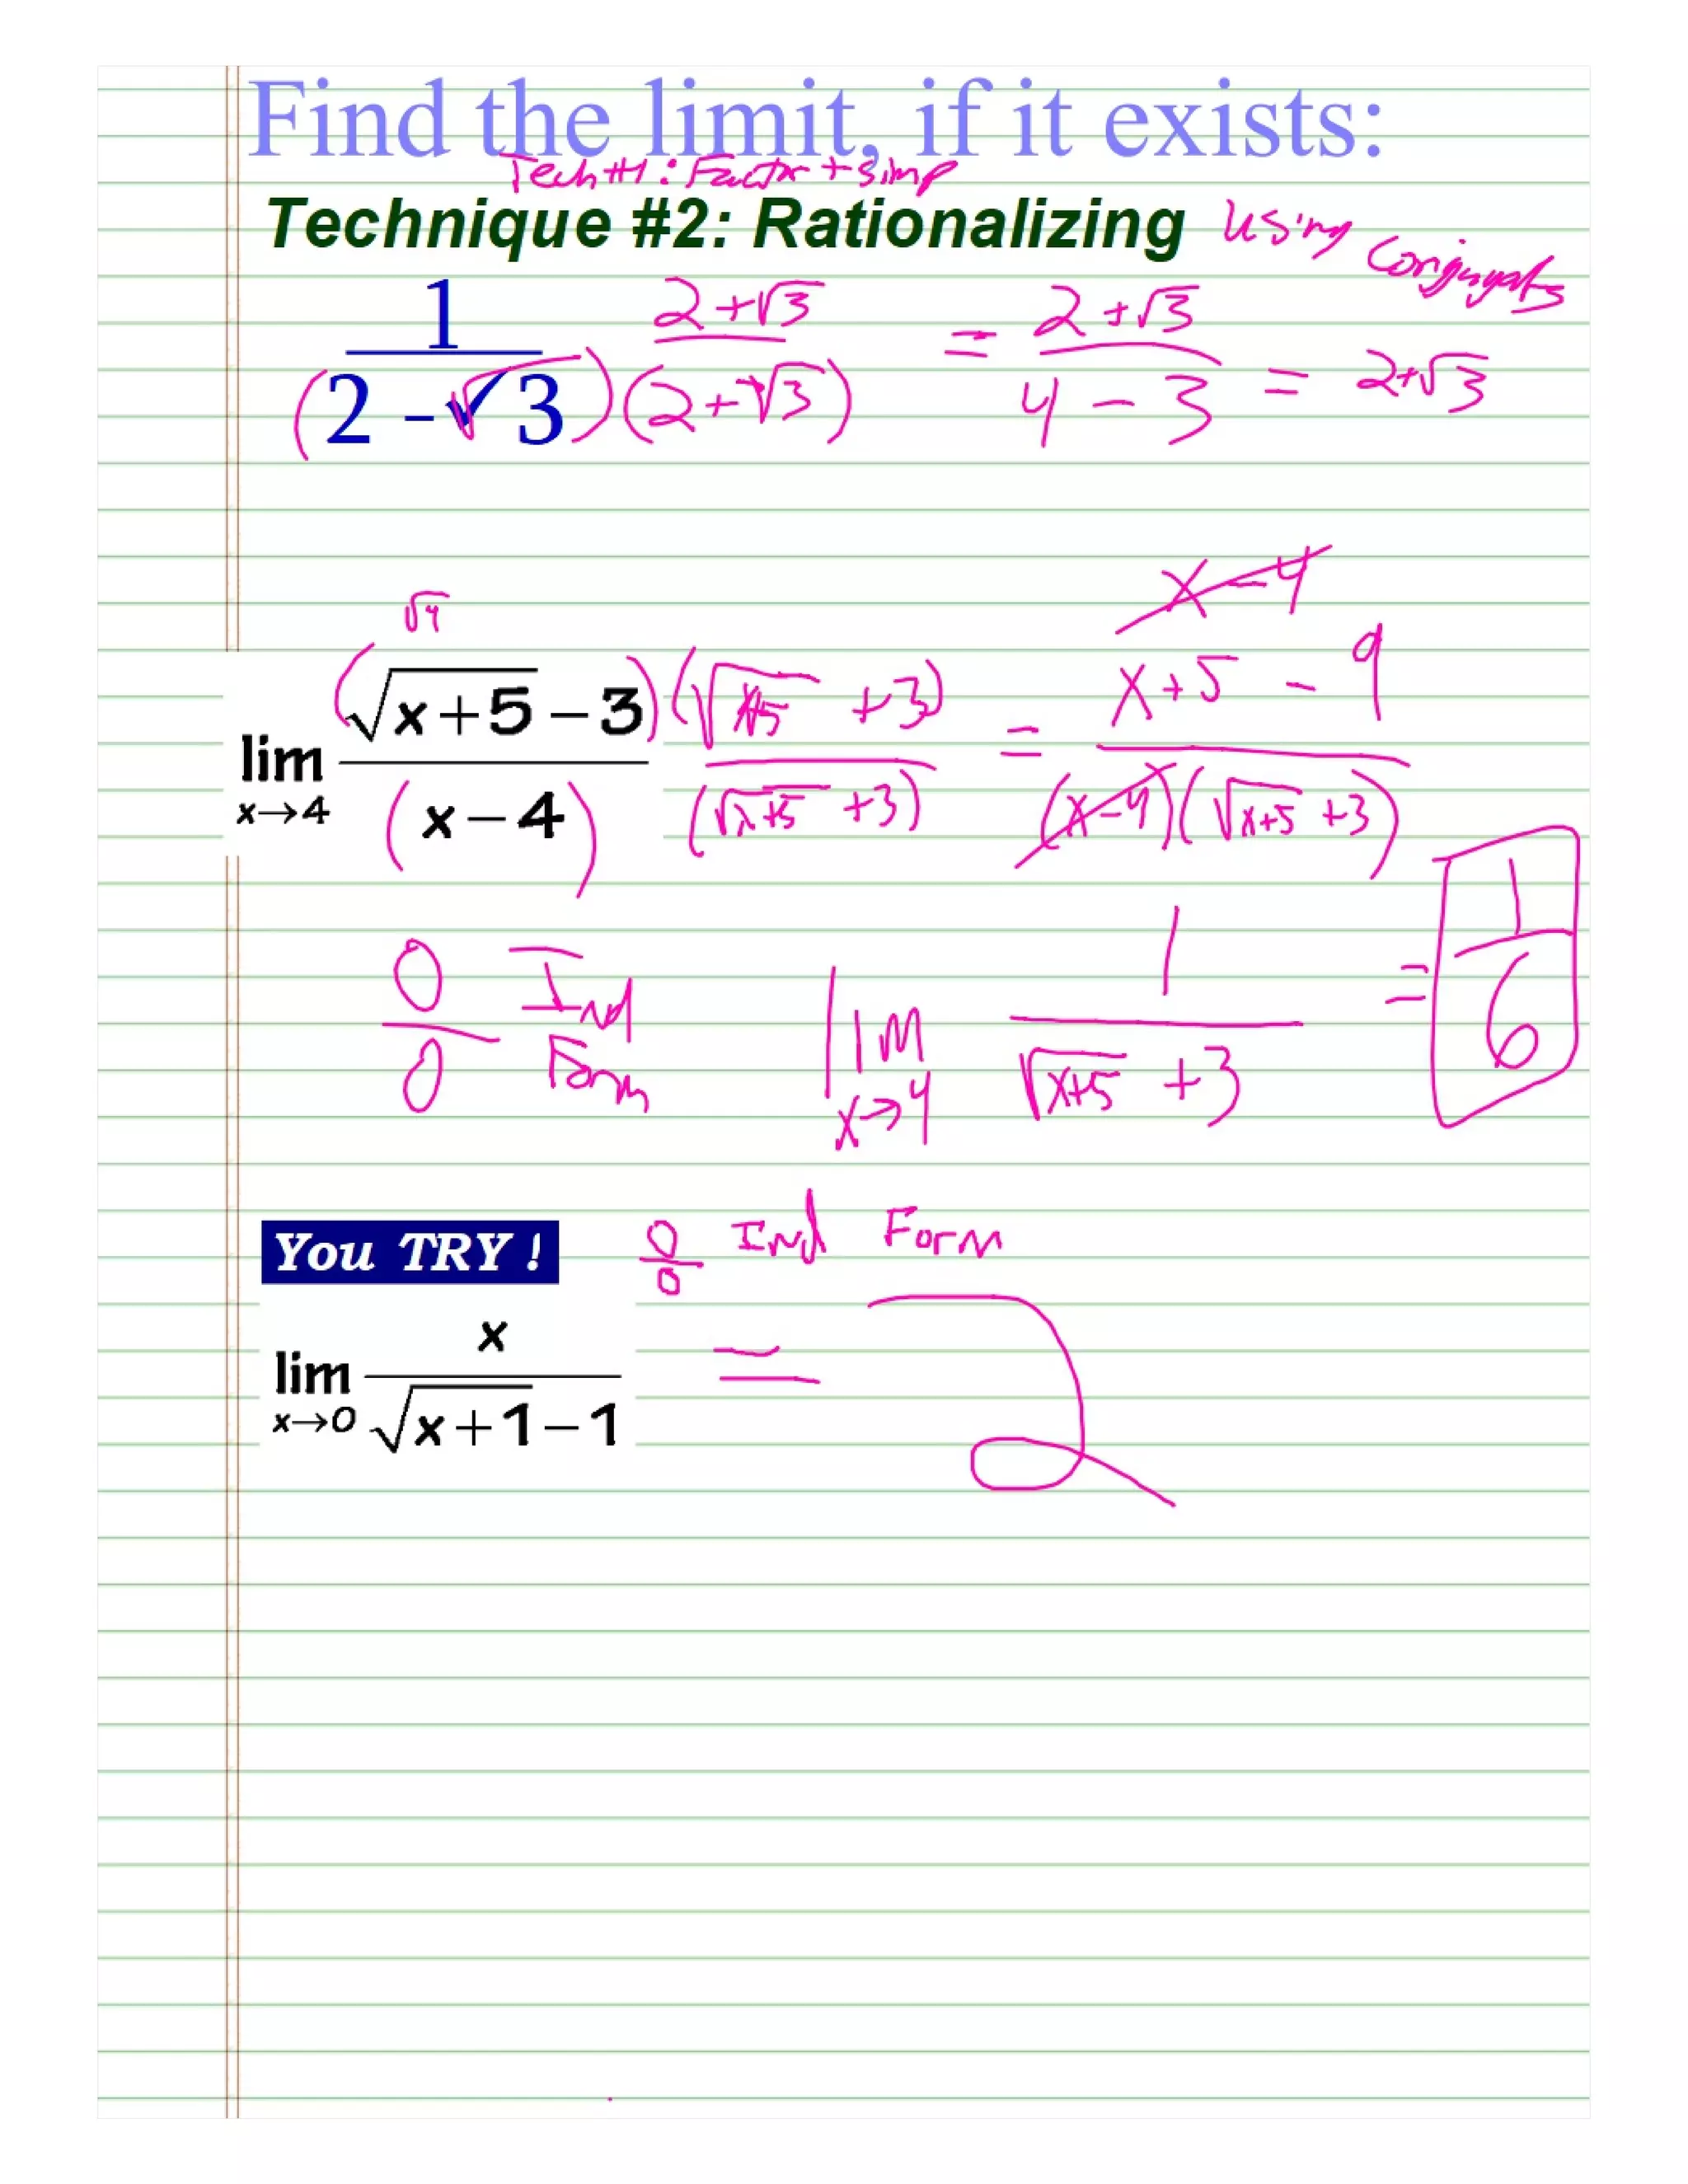 Find the limit, if it exists:
Tech #1: Factor + Simp
Technique #2: Rationalizing Using Conjugates
1/(2 - √3) (2+√3)/(2+√3) = (2+√3)/(4-3) = 2+√3
x-4
√9
lim x→4 (√(x+5) - 3)/(x-4) (√(x+5) + 3)/(√(x+5) + 3) = (x+5-9)/((x-4)(√(x+5) + 3))
0/0 Ind Form lim x→4 1/(√(x+5) + 3) = 1/6
You TRY! 0/0 Ind Form
lim x→0 x/(√(x+1) - 1) = 2